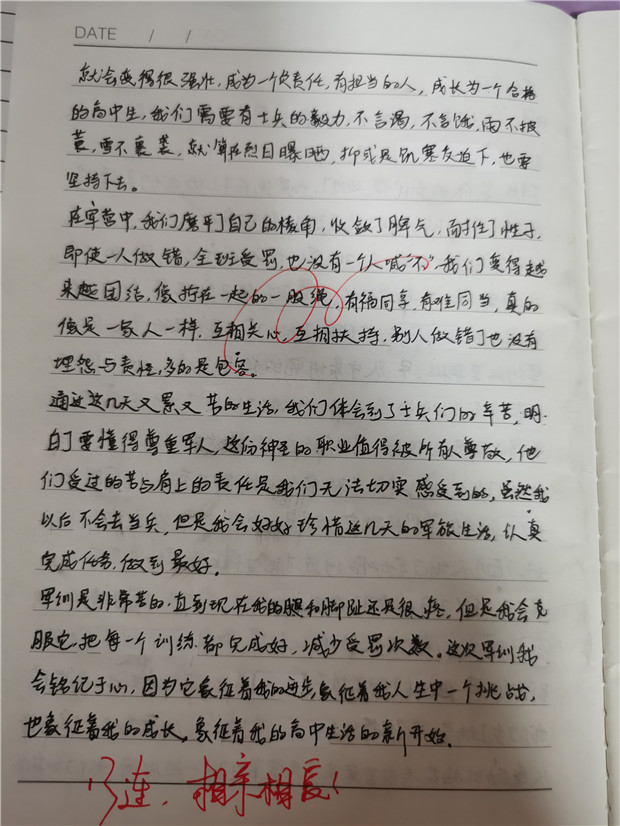 DATE / /
就会变得很强壮,成为一个负责任,有担当的人,成长为一个合格
的高中生,我们需要有士兵的毅力,不言渴,不言饿,雨不披
蓑,雪不裹裘,就算在烈日曝晒,抑或是饥寒交迫下,也要
坚持下去。
在军营中,我们磨平了自己的棱角,收敛了脾气,耐住了性子,
即使一人做错,全班受罚,也没有一个人喊“不”,我们变得越
来越团结,像拧在一起的一股绳,有福同享,有难同当,真的
像是一家人一样,互相关心,互相扶持,别人做错了也没有
埋怨与责怪,多的是包容。
通过这几天又累又苦的生活,我们体会到了士兵们的辛苦,明
白了要懂得尊重军人,这份神圣的职业值得被所有人尊敬,他
们受过的苦与肩上的责任是我们无法切实感受到的,虽然我
以后不会去当兵,但是我会好好珍惜这几天的军旅生活,认真
完成任务,做到最好。
军训是非常苦的,直到现在我的腿和脚趾还是很疼,但是我会克
服它,把每一个训练都完成好,减少受罚次数。这次军训我
会铭记于心,因为它象征着我的进步,象征着我人生中一个挑战,
也象征着我的成长,象征着我的高中生活的新开始。
连,相亲相爱!